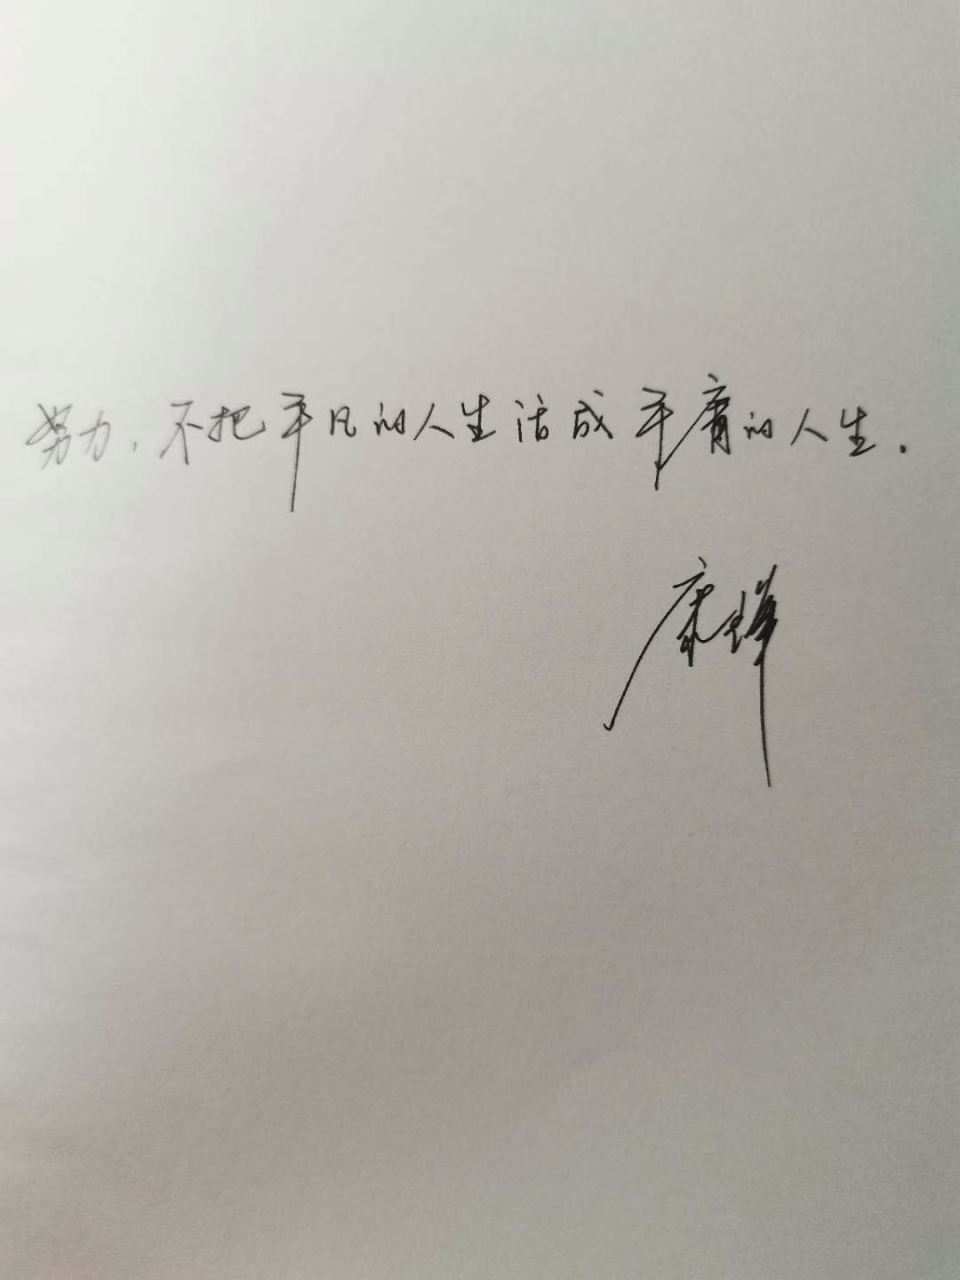 努力,不把平凡的人生活成平庸的人生.
康